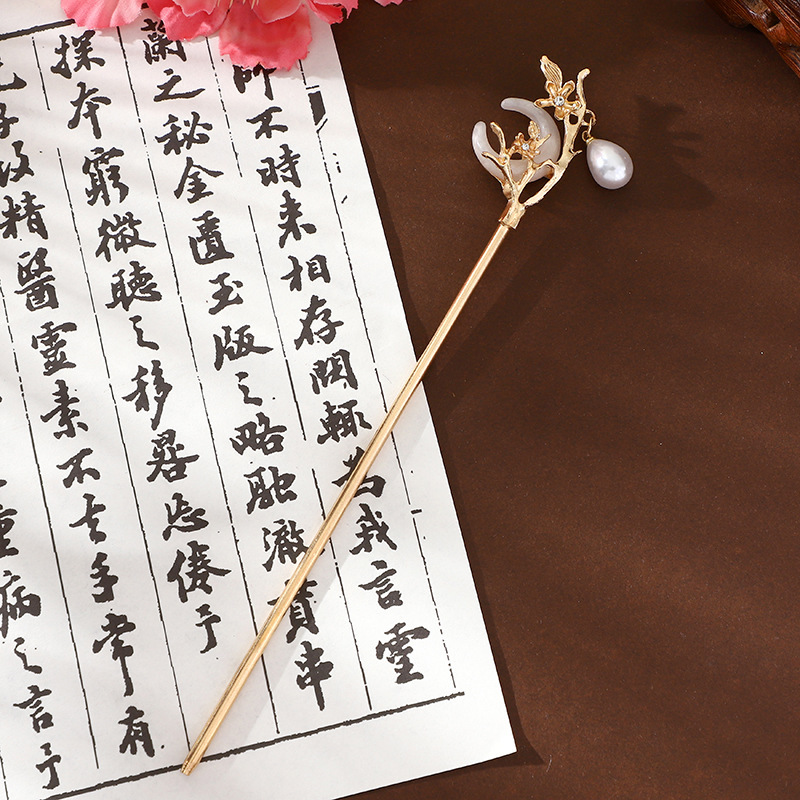 師不時来相存問輒為我言靈
蘭之秘金匱玉版之略融澈貫串
探本窮微聽之移晷忘倦予
精醫靈素不去手常有
病之言予